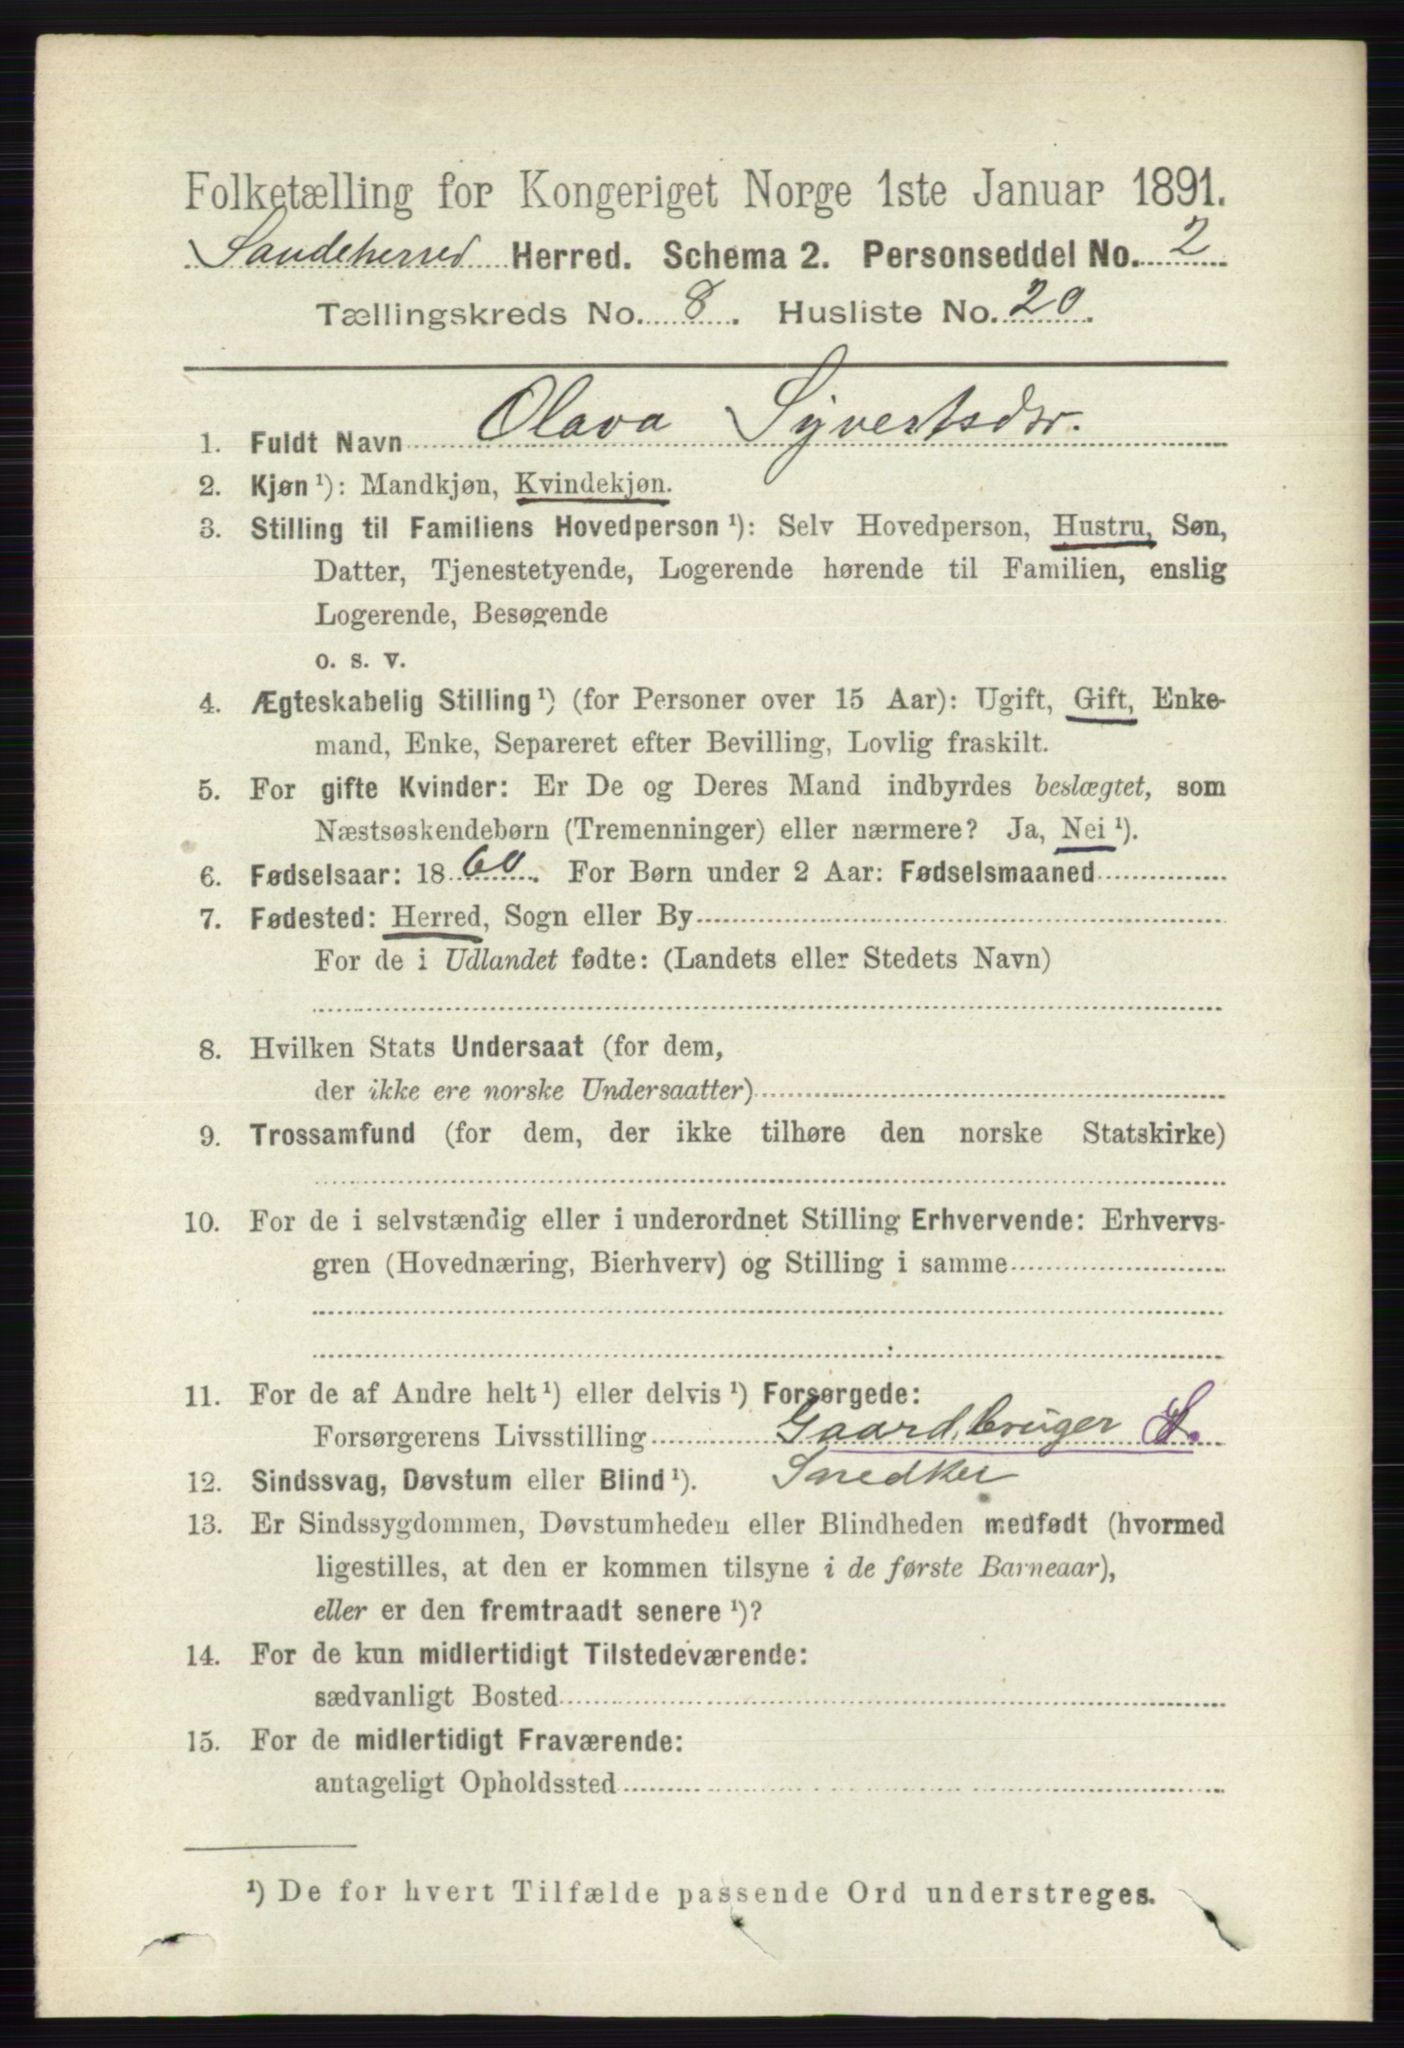 Folketælling for Kongeriget Norge 1ste Januar 1891.
Sandeherred Herred. Schema 2. Personseddel No. 2
Tællingskreds No. 8. Husliste No. 20.
1. Fuldt Navn Olava Syvertsdtr.
2. Kjøn ¹): Mandkjøn, Kvindekjøn.
3. Stilling til Familiens Hovedperson ¹): Selv Hovedperson, Hustru, Søn,
Datter, Tjenestetyende, Logerende hørende til Familien, enslig
Logerende, Besøgende
o. s. v.
4. Ægteskabelig Stilling ¹) (for Personer over 15 Aar): Ugift, Gift, Enke-
mand, Enke, Separeret efter Bevilling, Lovlig fraskilt.
5. For gifte Kvinder: Er De og Deres Mand indbyrdes beslægtet, som
Næstsøskendebørn (Tremenninger) eller nærmere? Ja, Nei ¹).
6. Fødselsaar: 1860. For Børn under 2 Aar: Fødselsmaaned
7. Fødested: Herred, Sogn eller By
For de i Udlandet fødte: (Landets eller Stedets Navn)
8. Hvilken Stats Undersaat (for dem,
der ikke ere norske Undersaatter)
9. Trossamfund (for dem, der ikke tilhøre den norske Statskirke)
10. For de i selvstændig eller i underordnet Stilling Erhvervende: Erhvervs-
gren (Hovednæring, Bierhverv) og Stilling i samme
11. For de af Andre helt ¹) eller delvis ¹) Forsørgede:
Forsørgerens Livsstilling Gaardbruger S.
12. Sindssvag, Døvstum eller Blind ¹). Snedker
13. Er Sindssygdommen, Døvstumheden eller Blindheden medfødt (hvormed
ligestilles, at den er kommen tilsyne i de første Barneaar),
eller er den fremtraadt senere ¹)?
14. For de kun midlertidigt Tilstedeværende:
sædvanligt Bosted
15. For de midlertidigt Fraværende:
antageligt Opholdssted
¹) De for hvert Tilfælde passende Ord understreges.